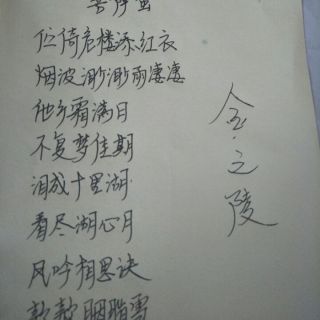 菩萨蛮
伫倚危楼添红衣
烟波渺渺雨凄凄
他乡霜满目
不复梦佳期
泪成十里湖
看尽湖心月
风吟相思诀
款款胭脂雪
金之陵